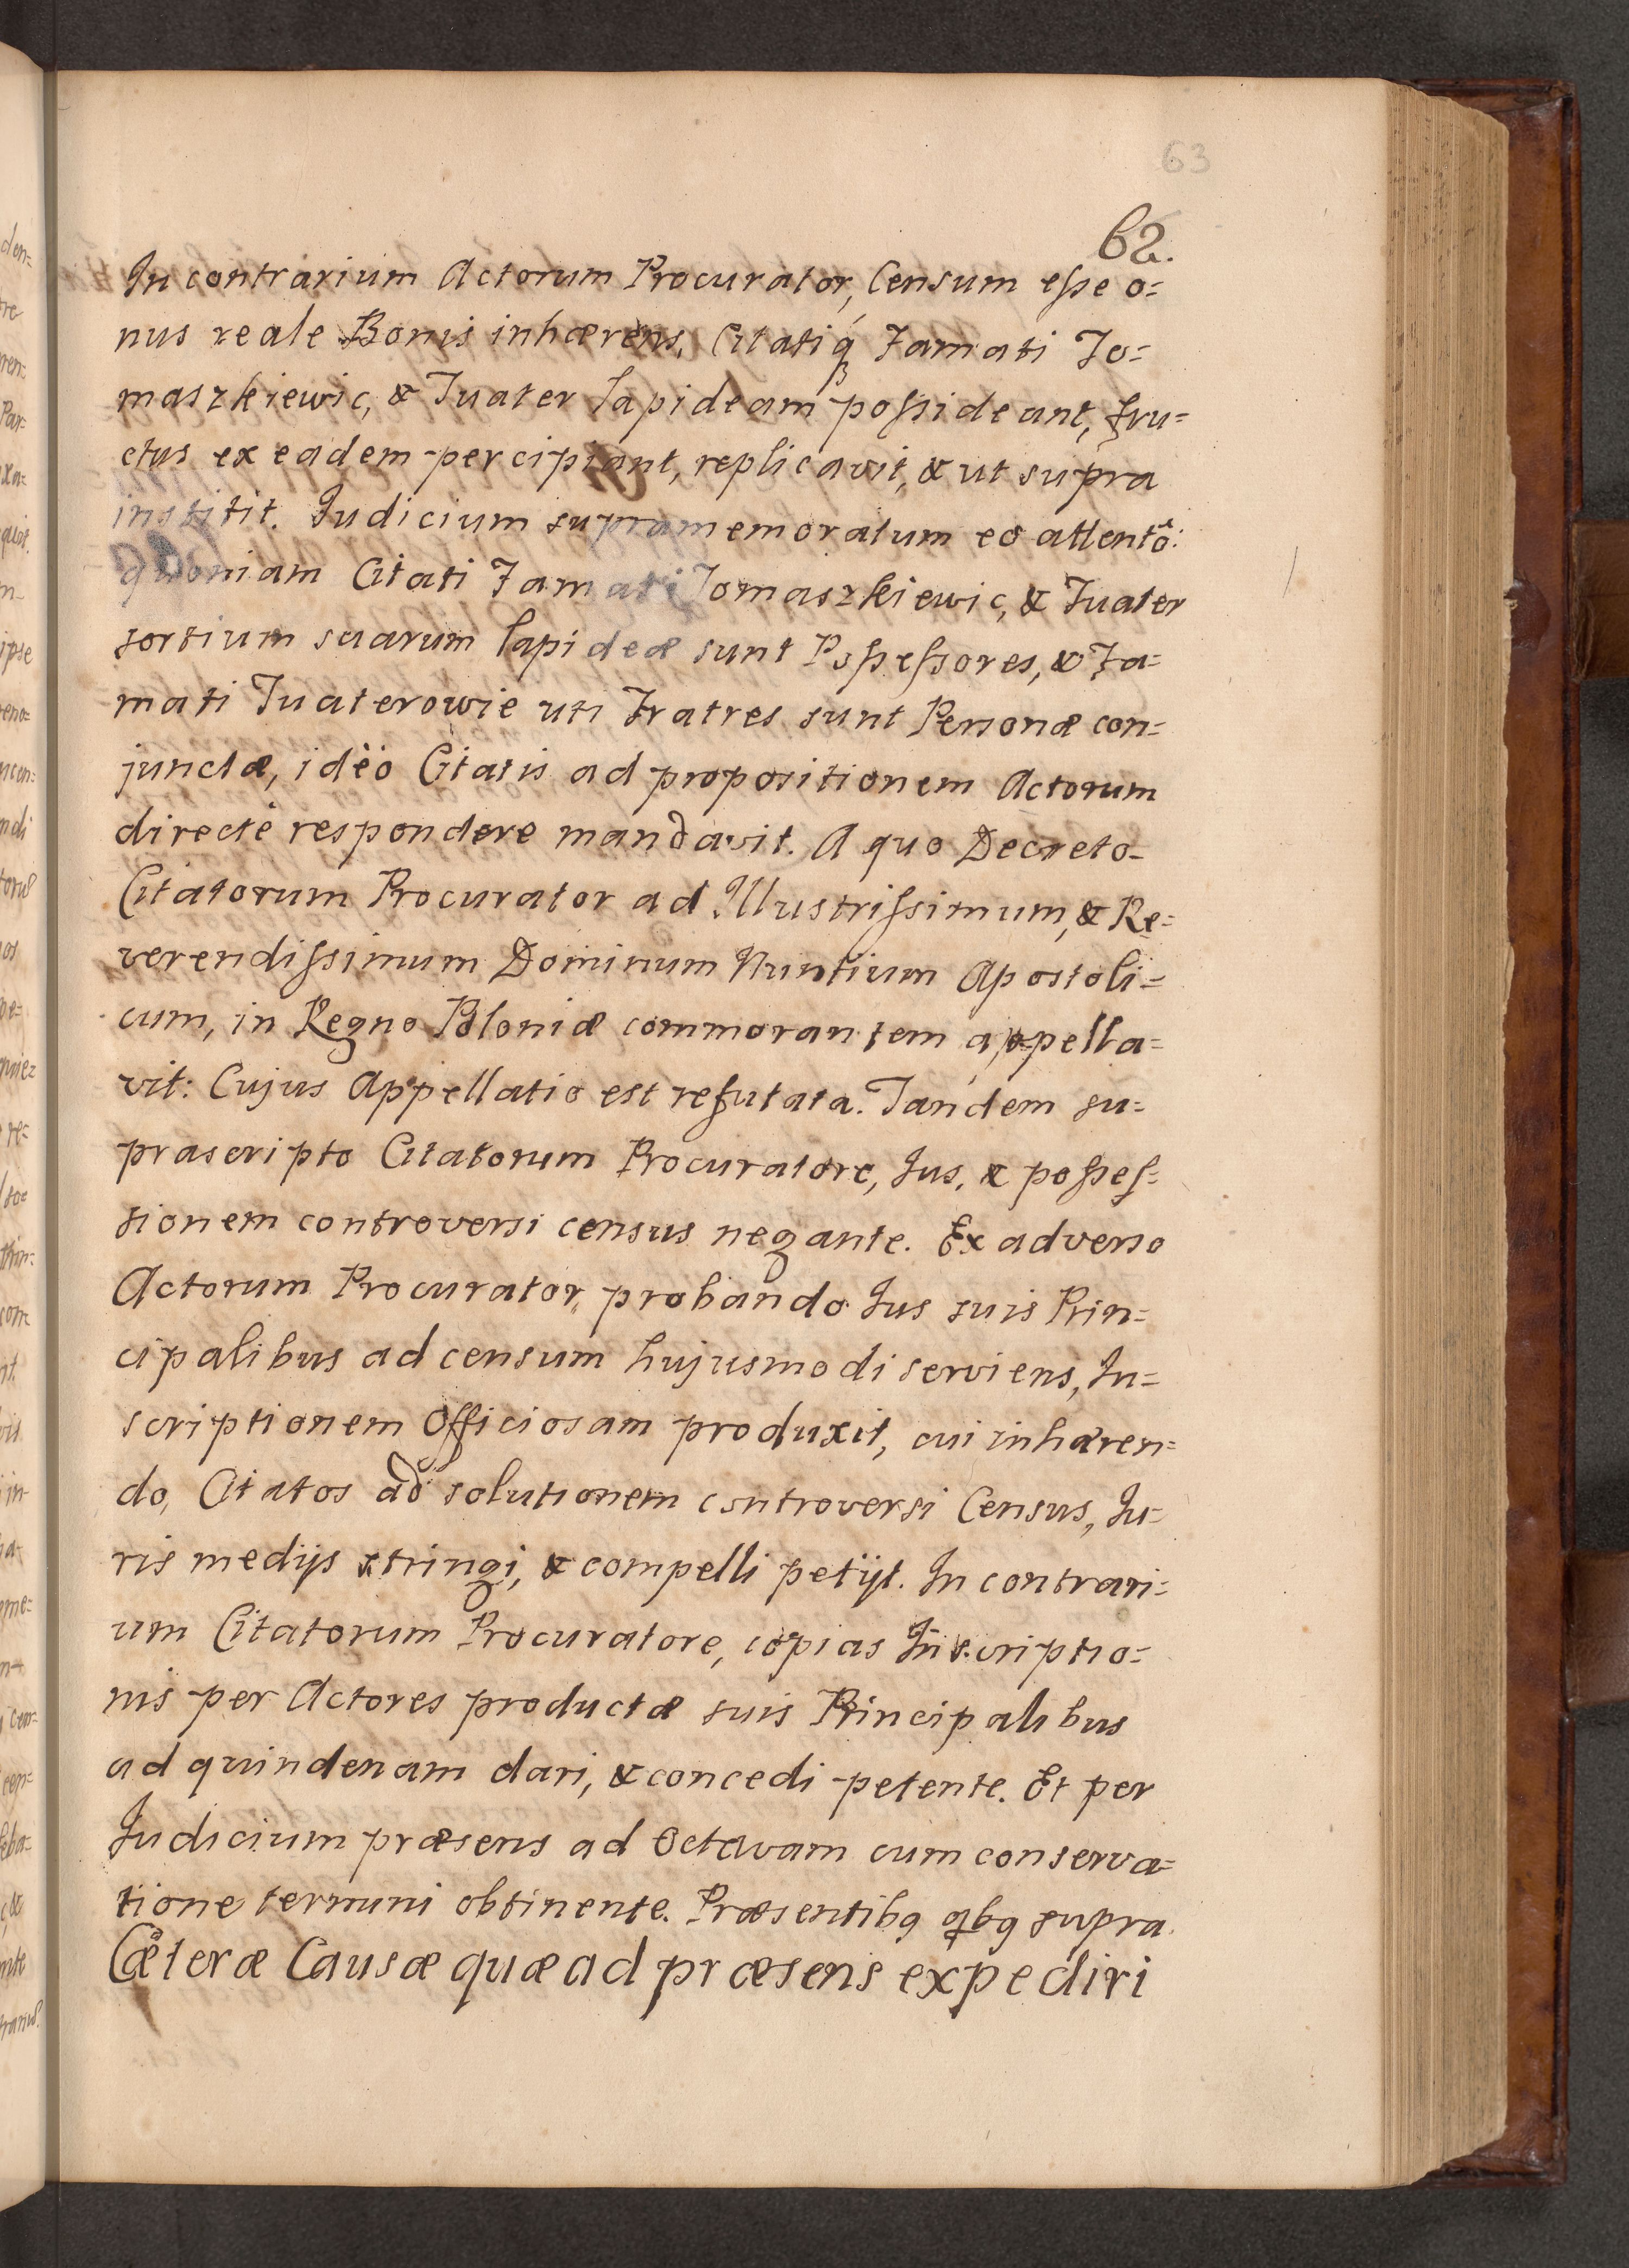 63
62.
In contrarium Actorum Procurator, Censum esse o=
nus reale Bonis inhærens, Citatiq3 Famati To=
maszkiewic, & Tuater Lapideam possideant, fru=
ctus ex eadem percipiant, replicavit, & ut supra
institit. Iudicium supramemoratum eo attentô:
quoniam Citati Famati Tomaszkiewic, & Tuater
sortium suarum Lapideæ sunt Possessores, & Fa=
mati Tuaterowie uti Fratres sunt Personæ con=
junctæ, idèo Citatis ad propositionem Actorum
directè respondere mandavit. A quo Decreto
Citatorum Procurator ad Illustrissimum, & Re=
verendissimum Dominum Nuntium Apostoli=
cum, in Regno Poloniæ commorantem appella=
vit: Cujus Appellatio est refutata. Tandem su=
prascripto Citatorum Procuratore, Ius, & posses=
sionem controversi census negante. Ex adverso
Actorum Procurator, probando Ius suis Prin=
cipalibus ad censum hujusmodi serviens, In=
scriptionem Officiosam produxit, cui inhæren=
do, Citatos ad solutionem controversi Census, Iu=
ris medijs stringi, & compelli petijt. In contrari=
um Citatorum Procuratore, copias Inscriptio=
nis per Actores productæ suis Principalibus
ad quindenam dari, & concedi petente. Et per
Iudicium præsens ad Octavam cum conserva=
tione termini obtinente. Præsentibq qbq supra.
Cæteræ Causæ quæ ad præsens expediri